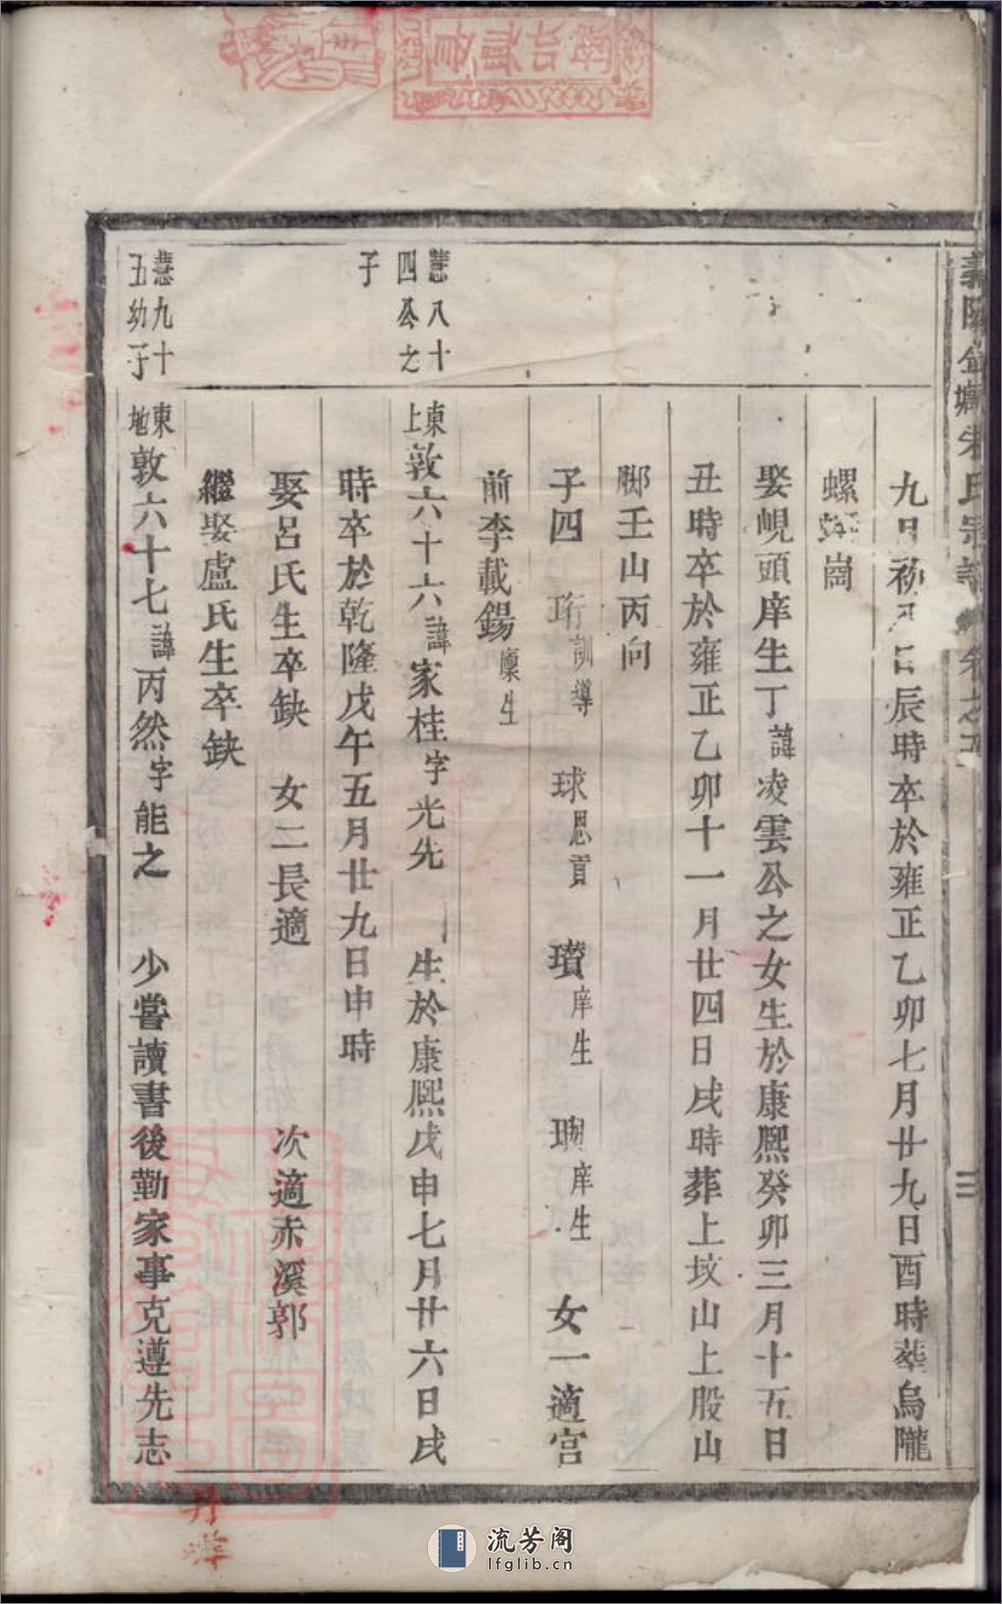 九日初
辰時卒於雍正乙卯七月廿九日酉時葬烏隴
螺螄崗
娶峴頭庠生丁諱凌雲公之女生於康熙癸卯三月十五日
丑時卒於雍正乙卯十一月廿四日戌時葬上坟山上股山
脚壬山丙向
子四 珩訓導 球恩貢 瓚庠生 庠生 女一適宫
前李載錫廪生
慧八十四公之子
東上敦六十六諱家桂字光先 生於康熙戊申七月廿六日戌
時卒於乾隆戊午五月廿九日申時
娶呂氏生卒缺 女二長適 次適赤溪郭
繼娶盧氏生卒缺
慧九十五幼子
東地敦六十七諱丙然字能之 少嘗讀書後勤家事克遵先志
流芳阁
lfglib.cn